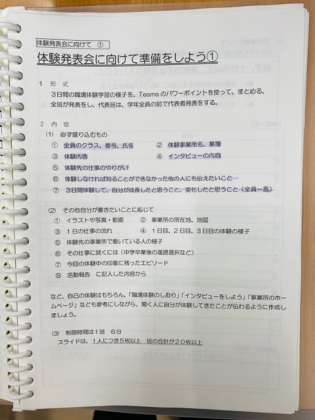 体験発表会に向けて ①
体験発表会に向けて準備をしよう①
1 形 式
3日間の職場体験学習の様子を、Teamsのパワーポイントを使って、まとめる。
全班が発表をし、代表班は、学年全員の前で代表者発表をする。
2 内 容
(1) 必ず盛り込むもの
① 全員のクラス、番号、氏名 ② 体験事業所名、業種
③ 体験内容 ④ インタビューの内容
⑤ 体験先の仕事のやりがい
⑥ 体験しなければ知ることができなかった他の人にも伝えたいこと…
⑦ 3日間体験して、自分が成長したと思うこと、変化したと思うこと（全員一言）
(2) その他自分が書きたいことに応じて
① イラストや写真・動画 ② 事業所の所在地、地図
③ 1日の仕事の流れ ④ 1日目、2日目、3日目の体験の様子
⑤ 体験先の事業所で働いている人の様子
⑥ その仕事に就くには（中学卒業後の進路選択など）
⑦ 今回の体験中の印象に残ったエピソード
⑧ 活動報告 に記入した内容から
など、自己の体験はもちろん、「職場体験のしおり」「インタビューをしよう」「事業所のホー
ムページ」なども参考にしながら、聞く人に自分が体験してきたことが伝わるように作成し
ましょう。
(3) 制限時間は1班 6分
スライドは、1人につき5枚以上 班の合計が20枚以上